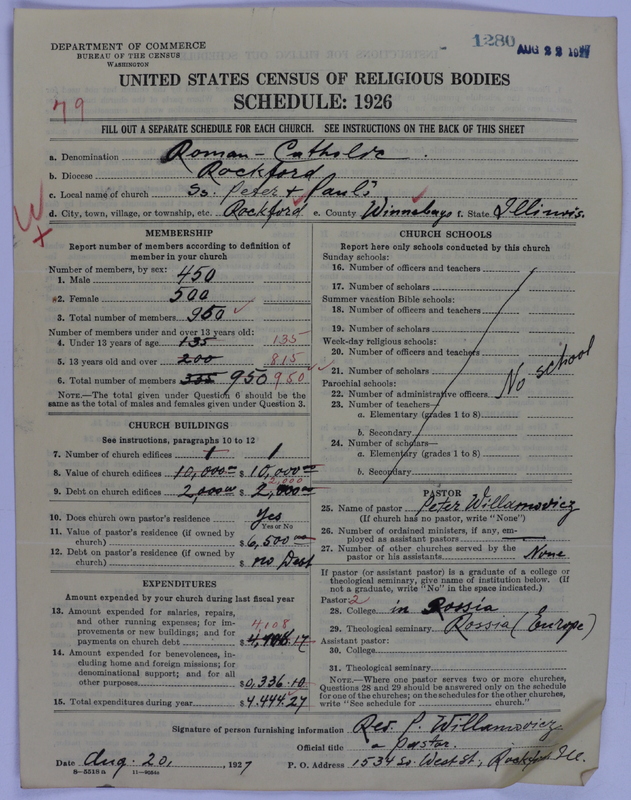 1280 AUG 22 1927
DEPARTMENT OF COMMERCE
BUREAU OF THE CENSUS
WASHINGTON
UNITED STATES CENSUS OF RELIGIOUS BODIES
SCHEDULE: 1926
79
FILL OUT A SEPARATE SCHEDULE FOR EACH CHURCH. SEE INSTRUCTIONS ON THE BACK OF THIS SHEET
a. Denomination Roman-Catholic.
b. Diocese Rockford
c. Local name of church Ss. Peter & Paul's
d. City, town, village, or township, etc. Rockford e. County Winnebago f. State Illinois.
MEMBERSHIP
Report number of members according to definition of
member in your church
Number of members, by sex:
1. Male 450
2. Female 500
3. Total number of members 950
Number of members under and over 13 years old:
4. Under 13 years of age 135 135
5. 13 years old and over 200 815
6. Total number of members 335 950 950
NOTE.—The total given under Question 6 should be the
same as the total of males and females given under Question 3.
CHURCH BUILDINGS
See instructions, paragraphs 10 to 12
7. Number of church edifices 1 1
8. Value of church edifices 10,000.00 $ 10,000.00
2,000
9. Debt on church edifices 2,000.00 $
10. Does church own pastor's residence Yes
Yes or No
11. Value of pastor's residence (if owned by
church) $ 6,500.00
12. Debt on pastor's residence (if owned by
church) $ no Debt
EXPENDITURES
Amount expended by your church during last fiscal year
13. Amount expended for salaries, repairs,
and other running expenses; for im-
provements or new buildings; and for
payments on church debt 4,108 $ 17
14. Amount expended for benevolences, in-
cluding home and foreign missions; for
denominational support; and for all
other purposes $ 0,336.10
15. Total expenditures during year $ 4.444.27
CHURCH SCHOOLS
Report here only schools conducted by this church
Sunday schools:
16. Number of officers and teachers
17. Number of scholars
Summer vacation Bible schools:
18. Number of officers and teachers
19. Number of scholars
Week-day religious schools:
20. Number of officers and teachers
21. Number of scholars
No school
Parochial schools:
22. Number of administrative officers
23. Number of teachers—
a. Elementary (grades 1 to 8)
b. Secondary
24. Number of scholars—
a. Elementary (grades 1 to 8)
b. Secondary
PASTOR
25. Name of pastor Peter Willamovicz
(If church has no pastor, write "None")
26. Number of ordained ministers, if any, em-
ployed as assistant pastors
27. Number of other churches served by the
pastor or his assistants. None
If pastor (or assistant pastor) is a graduate of a college or
theological seminary, give name of institution below. (If
not a graduate, write "No" in the space indicated.)
Pastor: 2
28. College in Rossia
29. Theological seminary Rossia (Europe)
Assistant pastor:
30. College
31. Theological seminary
NOTE.—Where one pastor serves two or more churches,
Questions 28 and 29 should be answered only on the schedule
for one of the churches; on the schedules for the other churches,
write "See schedule for church."
Signature of person furnishing information Rev. P. Willamovicz
Official title a pastor.
Date Aug. 20, 1927 P. O. Address 1534 So. West St., Rockford Ill.
8—5518a 11—9684s